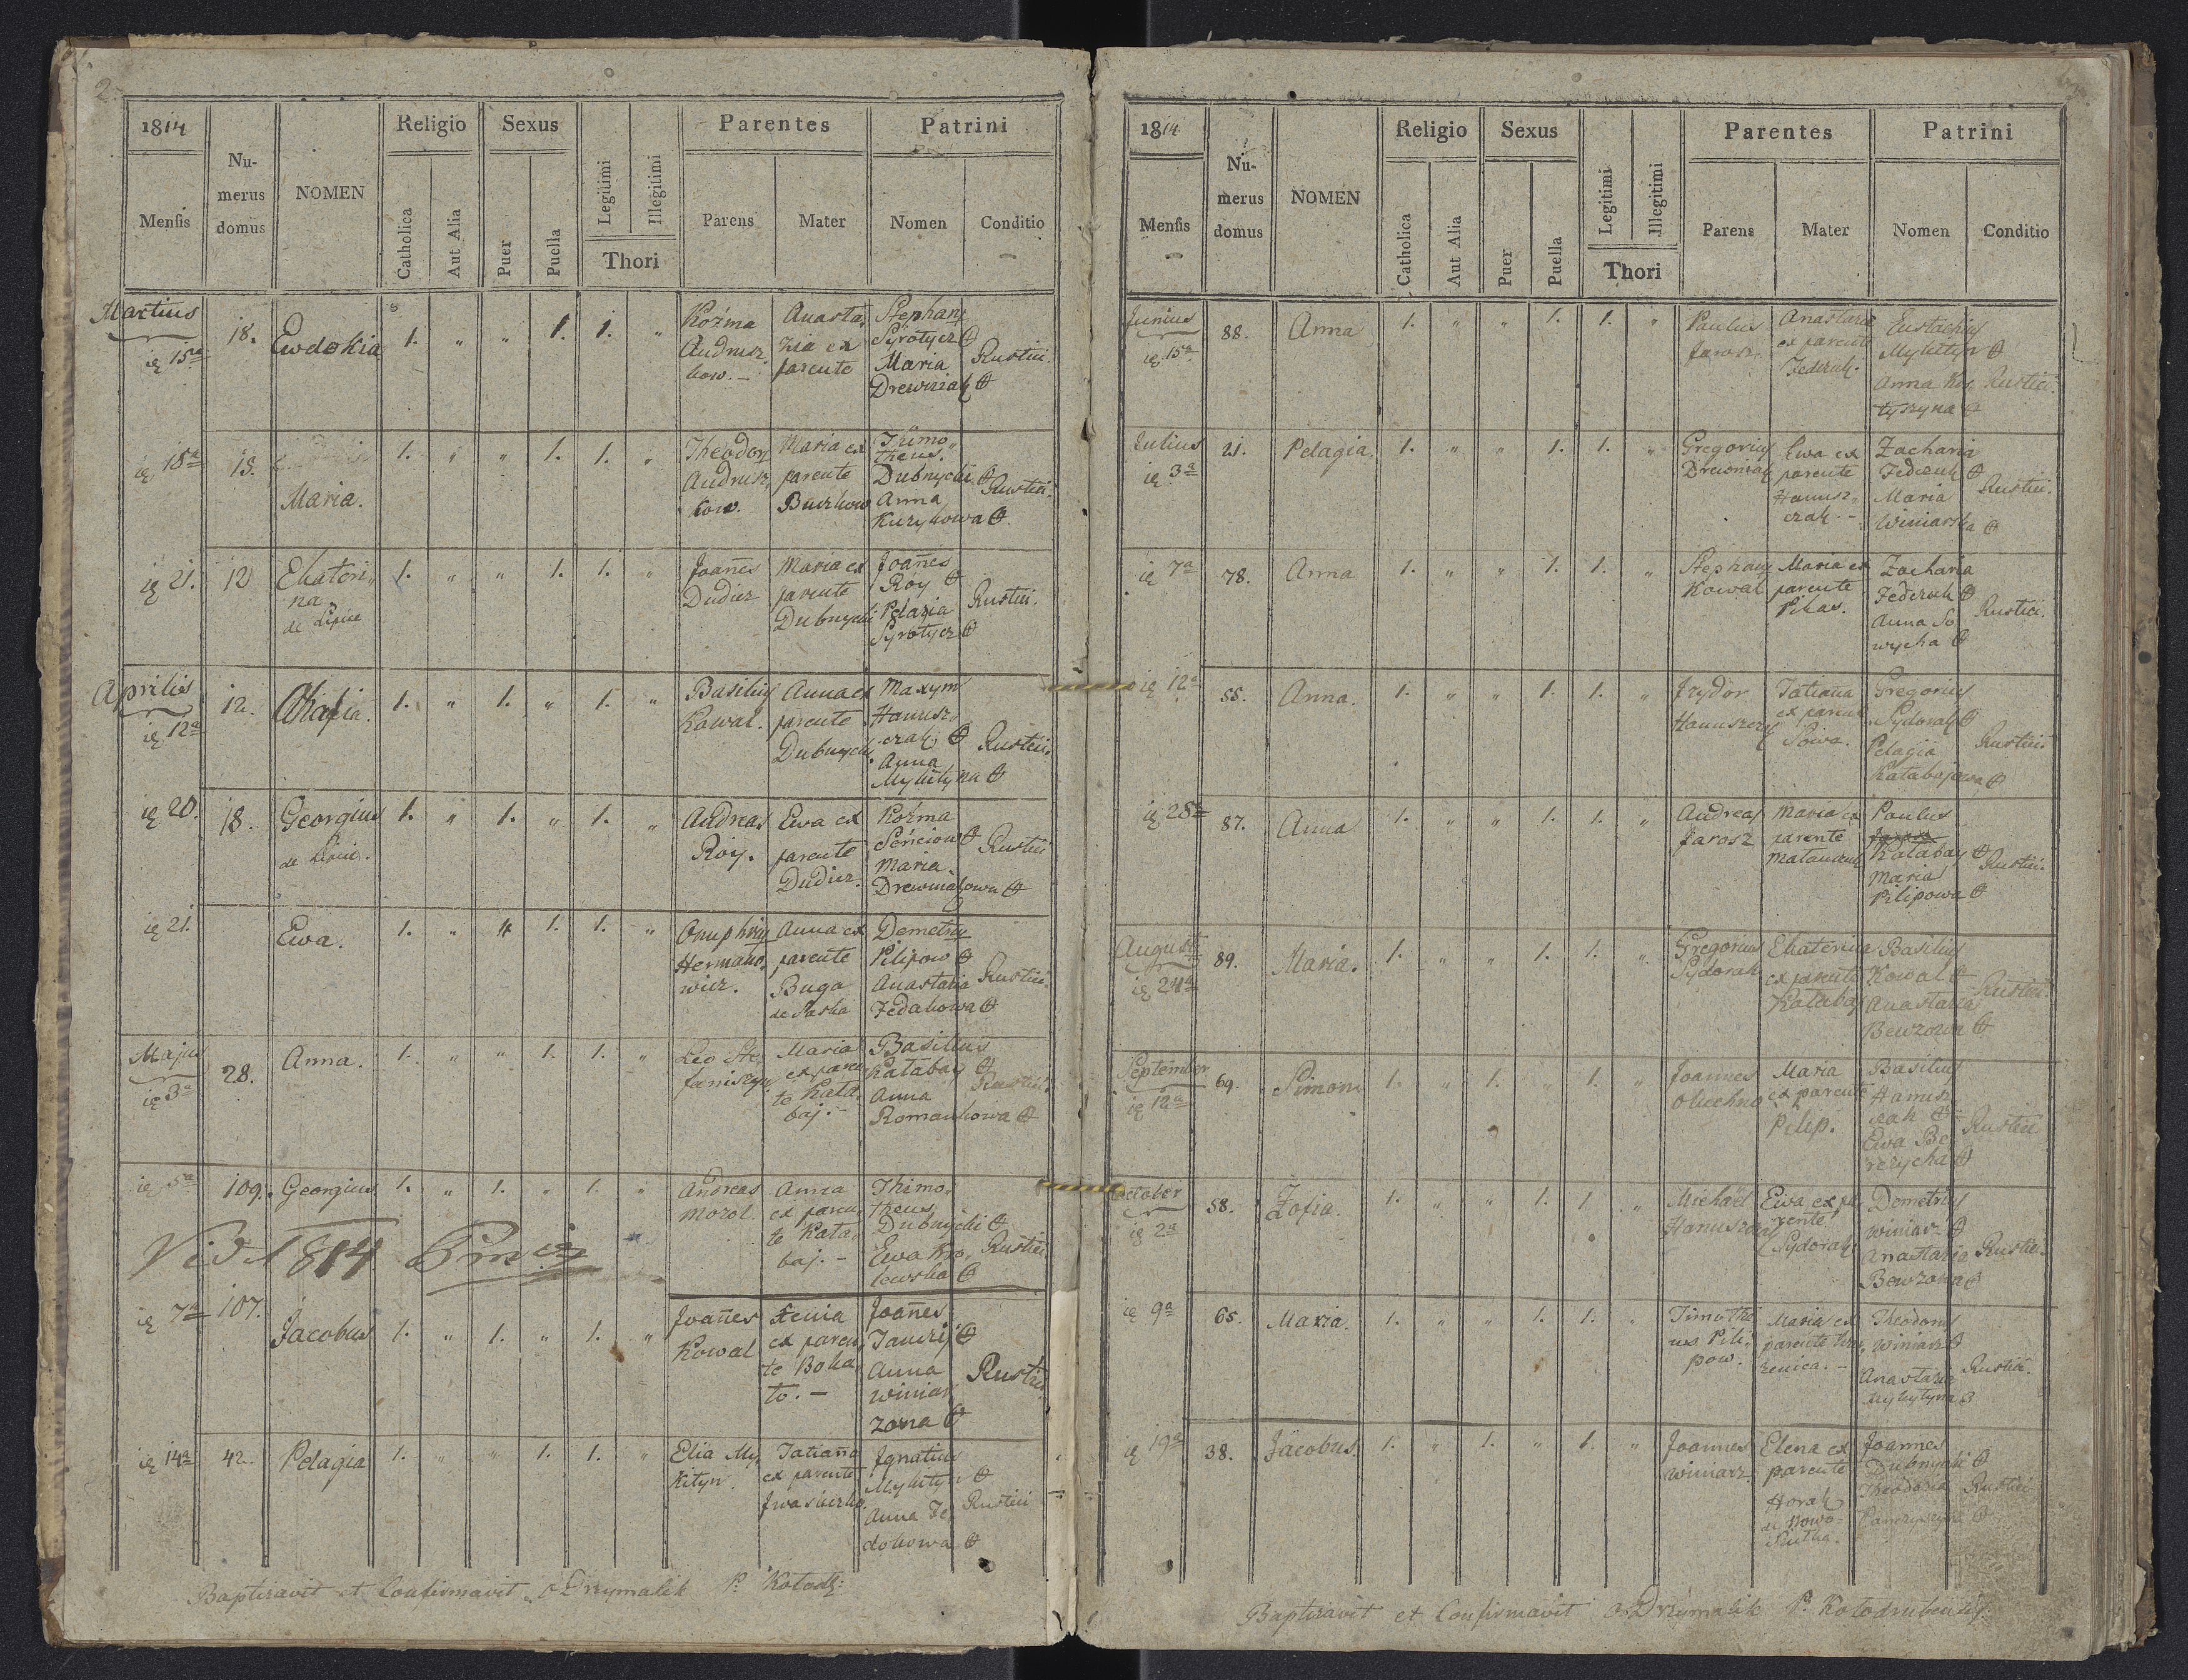 2.
1814
Mensis
Numerus domus
NOMEN
Religio
Catholica
Aut Alia
Sexus
Puer
Puella
Legitimi
Illegitimi
Thori
Parentes
Parens
Mater
Patrini
Nomen
Conditio
Martius
15ª
18.
Ewdokia
1. " " 1. 1. "
Kozma
Andrusz
kow. –
Anasta
zia ex
parente
Stephany
Syrotycz
Maria
Drewniak
Rustici.
18ª
18.
Maria.
1. " " 1. 1. "
Theodor
Andrusz
kow.
Maria ex
parente
Buczkow
Thimo
theus
Dubnycki
Anna
Kuzykowa
Rustici.
21.
12
Ekateri
na
de Lipice
1. " " 1. 1. "
Joañes
Dudicz
Maria ex
parente
Dubnycki
Joañes
Roy
Pelagia
Syrotycz
Rustici.
Aprilis
12ª
12.
1. " 1. " 1. "
Basilius
Kowal.
Anna ex
parente
Dubnycki
Maxym
Hanusz
czak
Anna
Mykityna
Rustici.
20.
18.
Georgius
de Lipice.
1. " 1. " 1. "
Andreas
Roy.
Ewa ex
parente
Dudicz.
Kozma
Maria
Drewniakowa
Rustici
21.
Ewa.
1. " " 1. 1. "
Onuphrius
Hermano
wicz.
Anna ex
parente
Buga
Demetrius
Pilipow
Anastazia
Fedakowa
Rustici.
Majus
3ª
28.
Anna.
1. " " 1. 1. "
Leo Ste
faniszyn
Maria
ex paren
te Kata
baj. –
Basilius
Katabay
Anna
Romankowa
Rustici.
5ª
109.
Georgius
1. " 1. " 1. "
Andreas
Moroz.
Anna
ex paren
te Kata
baj. –
Thimo
theus
Dubnycki
Ewa Kro
lewska
Rustici
Vid 1814
7ª
107.
Jacobus
1. " 1. " 1. "
Joañes
Kowal
Xenia
ex paren
te Boha
to. –
Joañes
Anna
Winiar
zowa
Rustici
14ª
42.
Pelagia
1. " " 1. 1. "
Elia My
kityn.
Tatiana
ex parente
Ignatius
Mykityn
Anna Fe
dokowa
Rustici
Baptizavit et Confirmavit Drzymalik P. Kołodz:
1814
Mensis
Numerus domus
NOMEN
Religio
Catholica
Aut Alia
Sexus
Puer
Puella
Legitimi
Illegitimi
Thori
Parentes
Parens
Mater
Patrini
Nomen
Conditio
Junius
15ª
88.
Anna
1. " " 1. 1. "
Paulus
Jarosz.
Anastazia
ex parente
Fedczuk.
Eustachius
Mykityn
Anna Ko
tyszyna
Rustici.
Julius
3ª
21.
Pelagia.
1. " " 1. 1. "
Gregorius
Drewniak
Ewa ex
parente
Hanusz
czak. –
Zacharia
Fedczuk
Maria
Winiarska
Rustici.
7ª
78.
Anna
1. " " 1. 1. "
Stephany
Kowal
Maria ex
parente
Pikas.
Zacharia
Fedczuk
Anna So
wycha
Rustici.
12ª
55.
Anna.
1. " " 1. 1. "
Izydor
Hanuszczak
Tatiana
ex parente
Sowa.
Gregorius
Sydorak
Pelagia
Katabajowa
Rustici
28ª
87.
Anna
1. " " 1. 1. "
Andreas
Jarosz
Maria ex
parente
Matauczuk
Paulus
Jarosz
Katabay
Maria
Pilipowa
Rustici.
August
24ª
89.
Maria.
1. " " 1. 1. "
Gregorius
Sydorak
Ekaterina
ex parente
Katabay
Basilius
Kowal
Anastazia
Bewzowa
Rustici.
September
12ª
69.
Simon.
1. " 1. " 1. "
Joannes
Oluchno
Maria
ex parente
Pilip.
Basilius
Hanusz
czak
Ewa Be
rezycha
Rustici
October
2ª
58.
Zofia.
1. " " 1. 1. "
Michael
Hanuszczak
Ewa ex pa
rente
Sydorak
Demetrius
Winiarz
Anastazia
Bewzowa
Rustici.
9ª
65.
Maria.
1. " " 1. 1. "
Timothe
us Pili
pow.
Maria ex
parente
Theodorus
Winiarz
Anastazia
Mykytyna
Rustici.
19ª
38.
Jacobus.
1. " 1. " 1. "
Joannes
Winiarz.
Elena ex
parente
Horak
de Nowo
Joannes
Dubnycki
Theodosia
Rustici
Baptizavit et Confirmavit Drzymalik P. Kołodrubensis